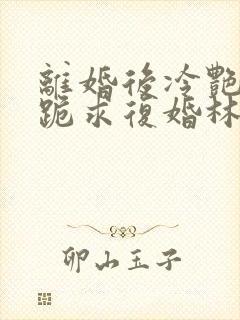 離婚後冷艷
跪求復婚林
卯山玉子